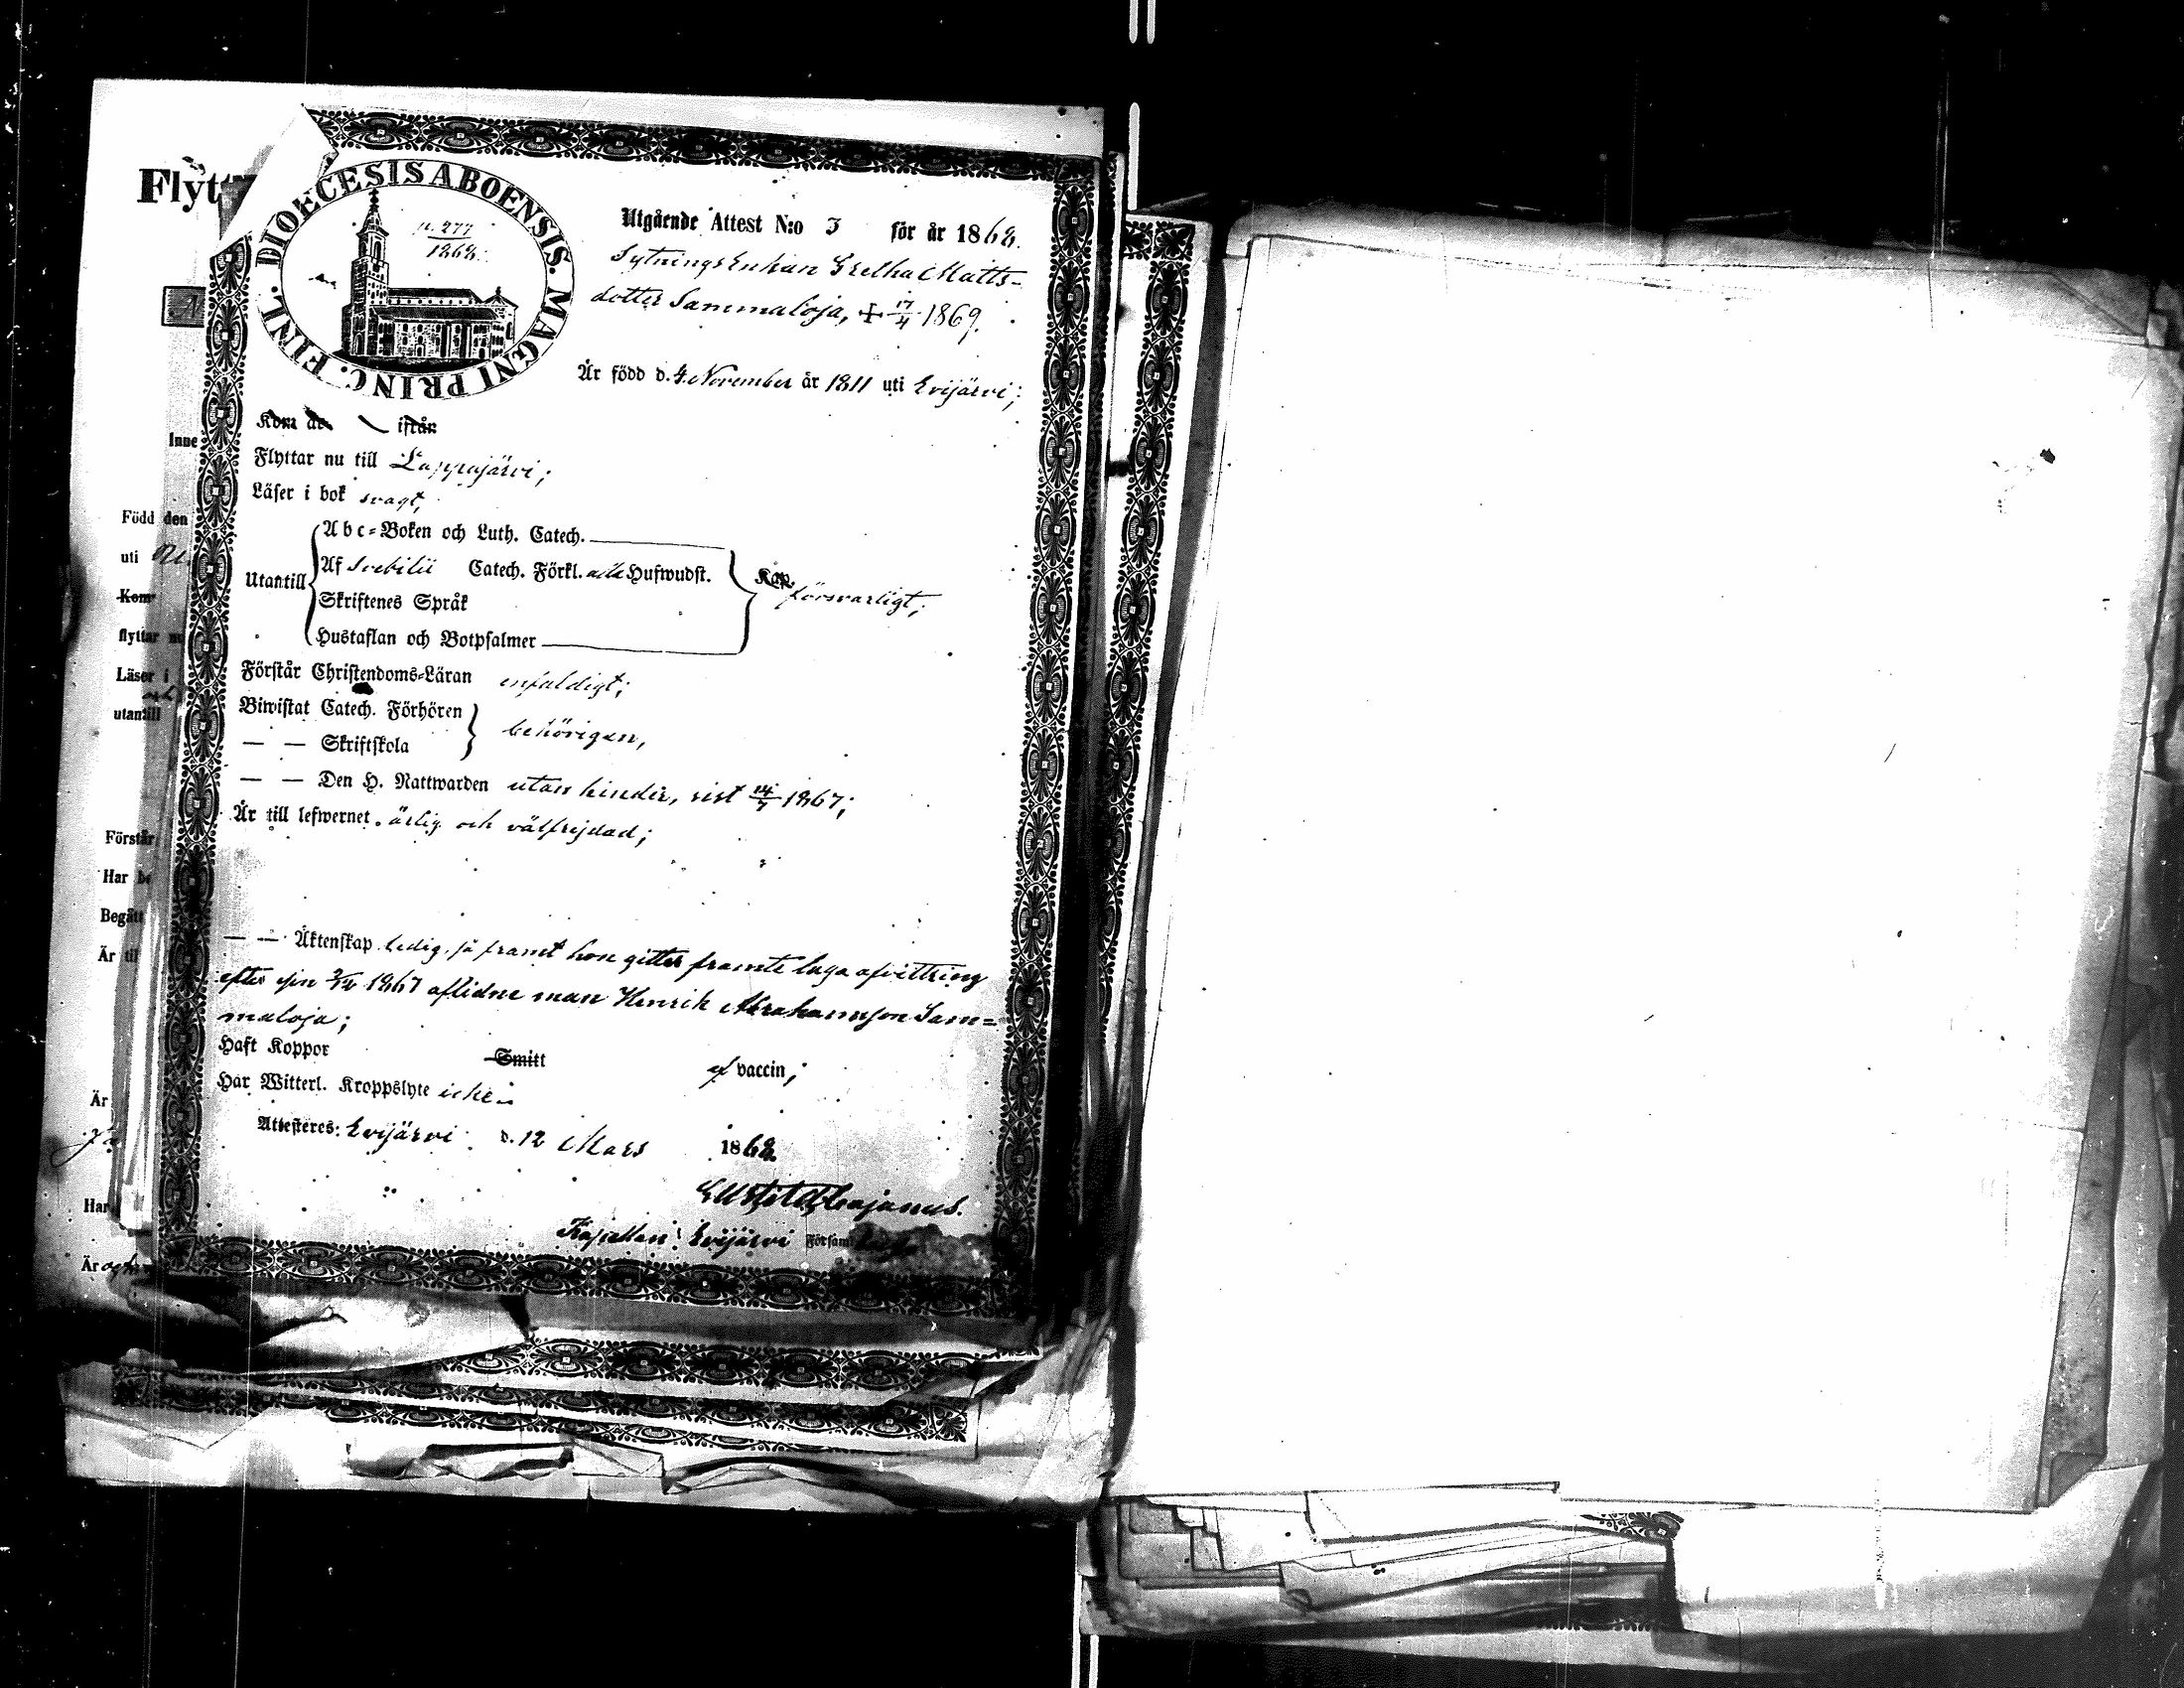 Flyt
DIOECESIS ABOENSIS. MAGNI PRINC. FINL.
p. 277
1868.
Utgående Attest N:o 3 för år 1868.
Sytningsenkan Gretha Matts-
dotter Sammaloja, + 17/4 1869.
Är född d. 4 November år 1811 uti Evijärvi;
Kom år ifrån
Flyttar nu till Lappajärvi;
Läser i bok svagt;
Utantill
Abc-Boken och Luth. Catech.
Af Svebilii Catech. Förkl. alla Hufwudst.
Skriftenes Språk
Hustaflan och Botpsalmer
Kap. försvarligt;
Förstår Christendoms-Läran enfaldigt;
Biwistat Catech. Förhören
— — Skriftskola
behörigen,
— — Den H. Nattwarden utan hinder, sist 14/7 1867;
Är till lefwernet ärlig och välfrejdad;
— — Äktenskap ledig, så framt hon gitter framte laga afvittring
efter sin 2/12 1867 aflidne man Henrik Abrahamsson Sam-
maloja;
Haft Koppor Smitt af vaccin;
Har Witterl. Kroppslyte icke.
Attesteres: Evijärvi d. 12 Mars 1868.
Cajanus.
Kapellan i Evijärvi Försam
Inne
Född den
uti
Kom
flyttar nu
Läser i
och
utantill
Förstår
Har be
Begått
Är til
Är
Har
Är